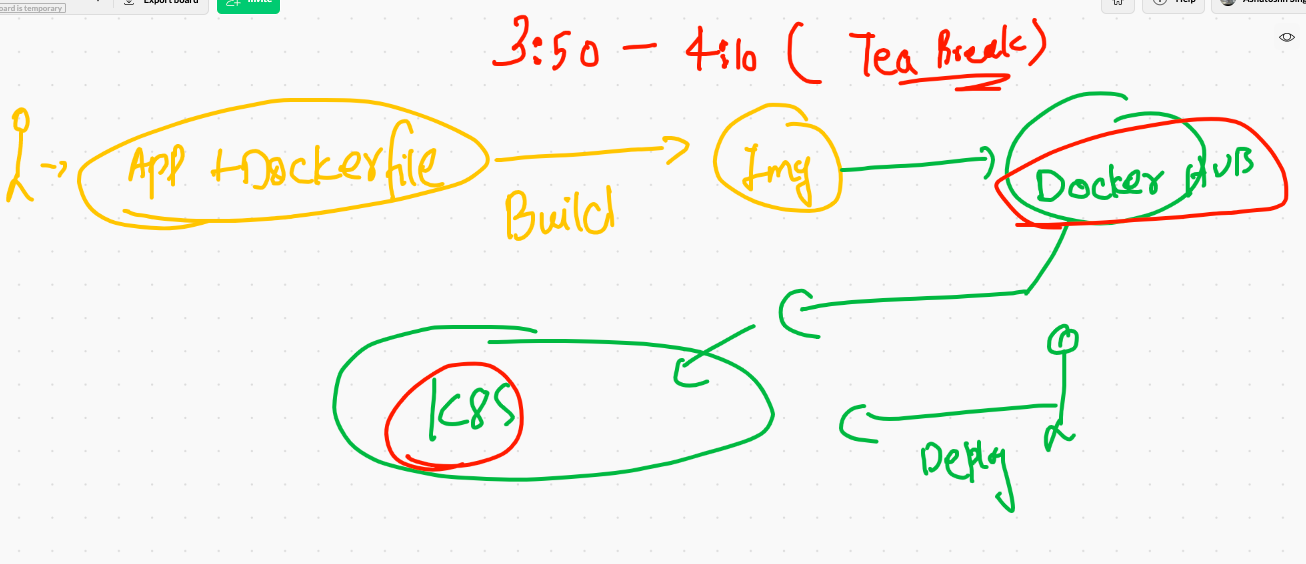 board is temporary
Export board
Invite
Help
3:50 - 4:10 ( Tea Break )
App + Dockerfile
Build
Img
Docker HUB
K8S
Deploy